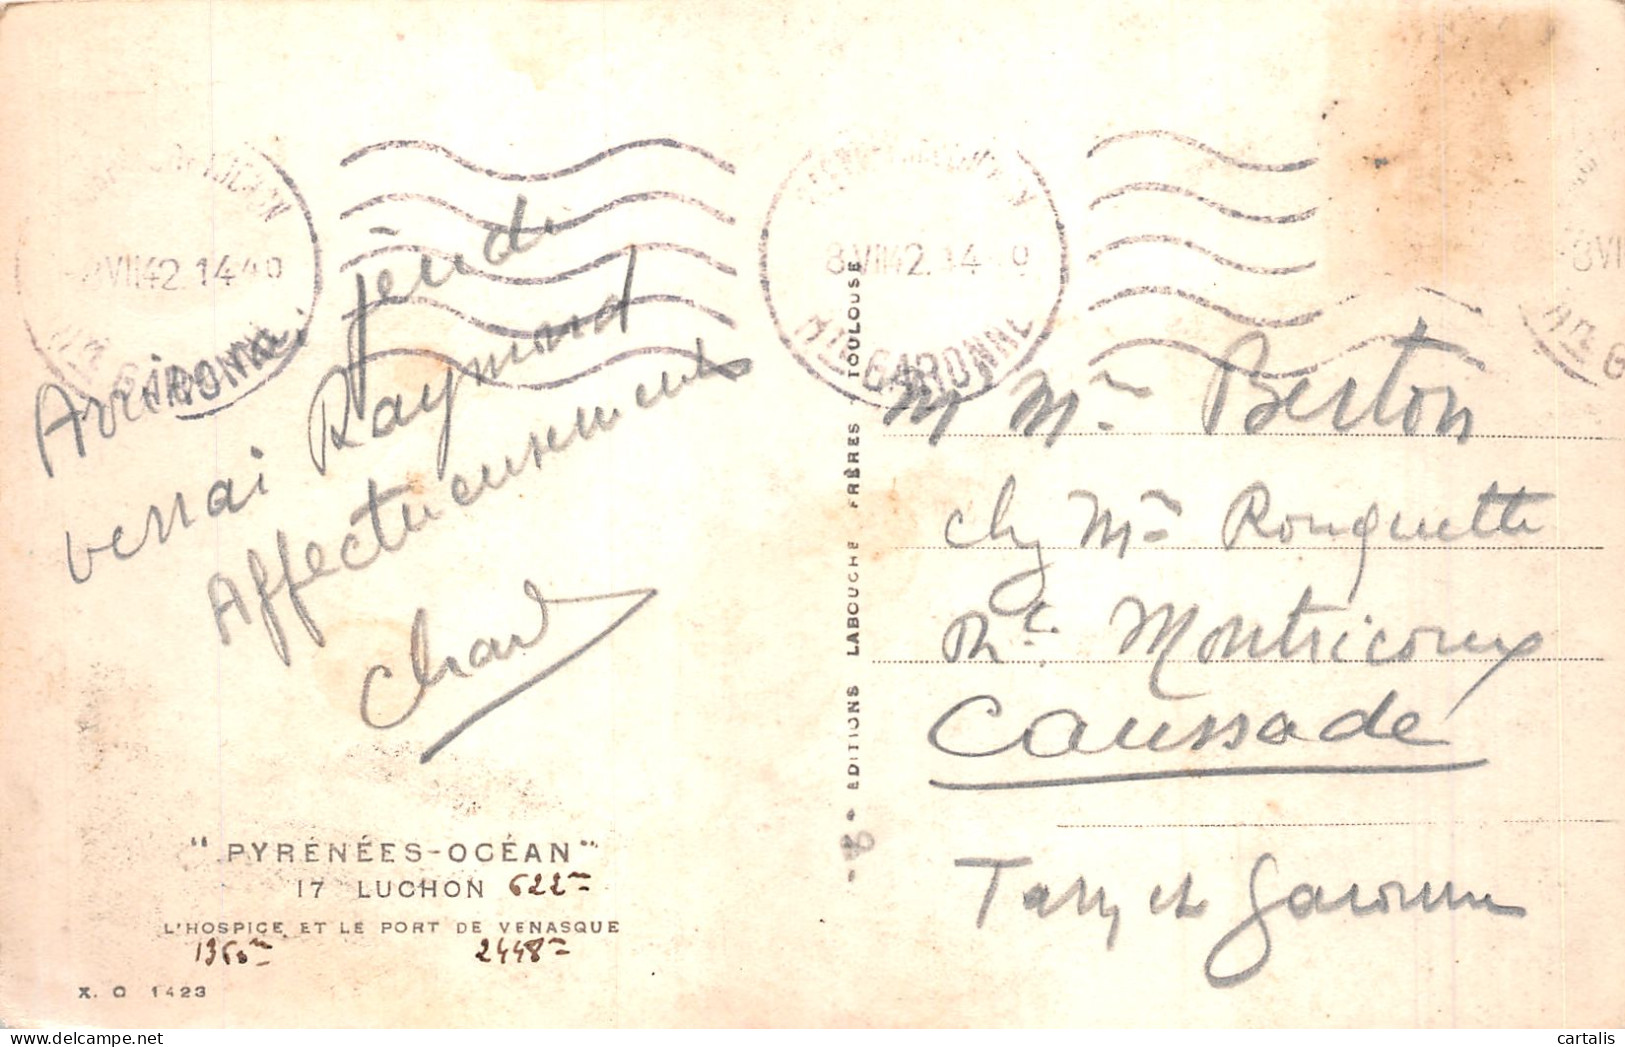 8 VII 42 14 40
Hte GARONNE
8 VII 42 14 40
Hte GARONNE
8 VI
Arriverai jeudi
verrai Raymond
Affectueusement
"PYRÉNÉES-OCÉAN"
17 LUCHON 622m
L'HOSPICE ET LE PORT DE VENASQUE
1360m 2448m
X. O 1423
* EDITIONS LABOUCHE FRÈRES TOULOUSE
M Me Berton
chez Me Rouquette
Rte Montricoux
Caussade
Tarn et Garonne
cartalis